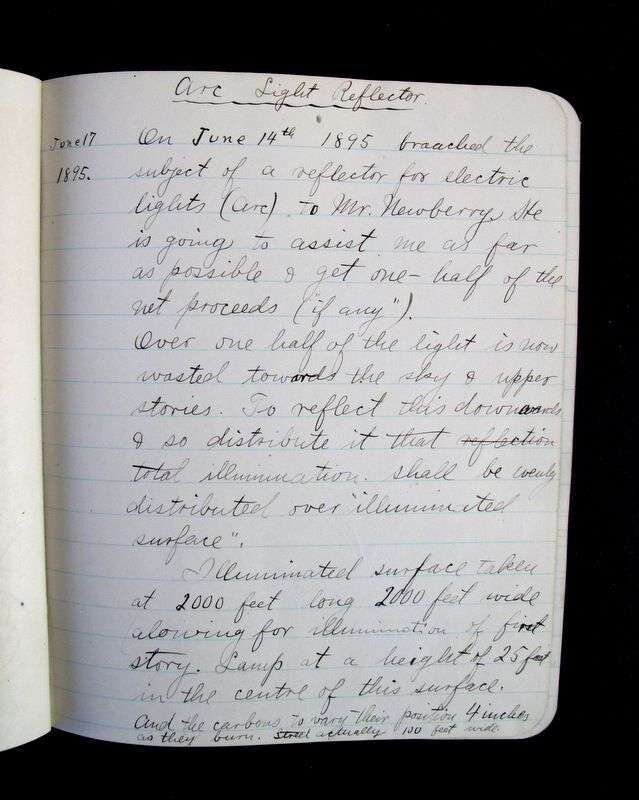 Arc Light Reflector.
June 17
1895.
On June 14th 1895 braached the
subject of a reflector for electric
lights (arc). to Mr. Newberry. He
is going to assist me as far
as possible & get one-half of the
net proceeds ("if any").
Over one half of the light is now
wasted towards the sky & upper
stories. To reflect this downwards
& so distribute it that reflection
total illumination. shall be evenly
distributed over "illuminated
surface".
Illuminated surface taken
at 2000 feet long 2000 feet wide
alowing for illumination of first
story. Lamp at a height of 25 feet
in the centre of this surface.
And the carbons to vary their position 4 inches
as they burn. Street actually 100 feet wide.